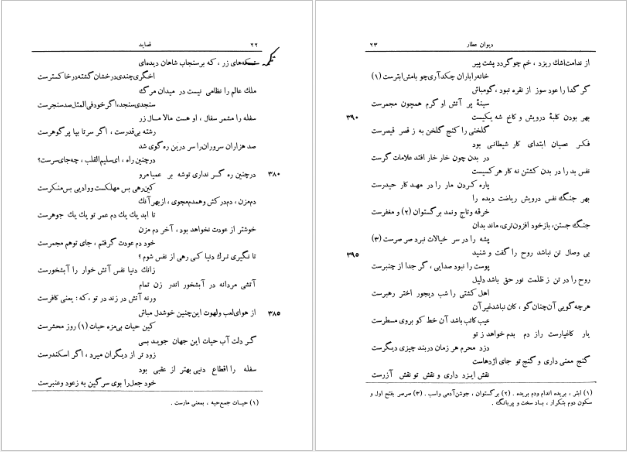 ۲۲
قصاید
تکمه‌های زر ، که بر سنجاب شاهان دیده‌ای
اخگری چندی درخشان گشته در خاکسترست
ملک عالم را نظامی نیست در میدان مرگ
سنجدی سنجد، اگر خود فی المثل صد سنجرست
سفله را مشمر سفال ، او هست مالا مال زر
رشته بی‌قدرست ، اگر سر تا بپا پر گوهرست
صد هزاران سروران را سر درین ره گوی شد
در چنین راه ، ای سلیم القلب ، چه جای سرست؟
۳۸۰
در چنین ره گر نداری توشه بر عمیا مرو
کین رهی بس مهلکست و وادیی بس منکرست
دم مزن ، دم در کش و همدم مجوی ، از بهر آنک
تا ابد یک یک دم عمر تو یک یک جوهرست
خوشتر از عودت نخواهد بود ، آخر دم مزن
خود دم عودت گرفتم ، جای تو هم مجمرست
تا نگیری ترک دنیا کی رهی از نفس شوم ؟
زانک دنیا نفس آتش خوار را آبشخورست
آتشی مردانه در آبشخور اندر زن تمام
ورنه آتش در زند در تو ، که : یعنی کافرست
۳۸۵
از هوای لعب و لهوت این چنین خوشدل مباش
کین حیات بی‌مزه حیات (۱) روز محشرست
گر دلت آب حیات این جهان جوید بسی
زود تر از دیگران میرد ، اگر اسکندرست
سفله را اقطاع دنیی بهتر از عقبی بود
خود جعل را بوی سرگین به ز عود و عنبرست
(۱) حیات جمع حیه ، بمعنی مارست .
دیوان عطار
۲۳
از ندامت اشک ریزد ، خم چو گردد پشت پیر
خانه را باران چکد آری چو بامش ابترست (۱)
گر گدا را عود سوز از نقره نبود ، گو مباش
سینه پر آتش او گرم همچون مجمرست
۳۹۰
بهر بودن کلبه درویش و کاخ شه یکیست
گلخنی را کنج گلخن به ز قصر قیصرست
فکر عصیان ابتدای کار شیطانی بود
در بدن چون خار خار افتد علامات گرست
نفس بد را در بدن کشتن نه کار هر کسیست
پاره کردن مار را در مهد کار حیدرست
بهر جنگ نفس درویش ریاضت دیده را
خرقه و تاج و نمد برگستوان (۲) و مغفرست
جنگ جستن، باز خود افزون تری، ماند بدان
پشه را در سر خیالات نبرد صرصرست (۳)
۳۹۵
بی وصال تن نباشد روح را گفت و شنید
پوست را نبود صدایی ، گر جدا از چنبرست
روح را در تن ز ظلمت نور حق باشد دلیل
اهل کشتی را شب دیجور اختر رهبرست
هر چه گویی آن چنان گو ، کان نباشد غیر آن
عیب کاتب باشد آن خط کو بروی مسطرست
یار کافیارست راز دم بدم خواهد ز تو
دزد محرم هر زمان در بند چیزی دیگرست
گنج معنی داری و گنج تو جای اژدهاست
نقش ایزد داری و نقش تو نقش آزرست
(۱) ابتر ، بریده اندام و دم بریده . (۲) برگستوان ، جوشن آدمی و اسب . (۳) صرصر بفتح اول و
سکون دوم بتکرار ، باد سخت و پر بانگ .